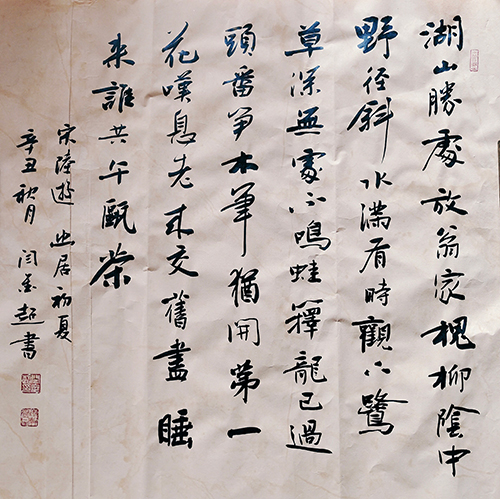 湖山勝處放翁家槐柳陰中
野径斜水滿有時觀下鷺
草深無處不鳴蛙籜龍已過
頭番笋木筆猶開第一
花嘆息老来交舊盡睡
来誰共午甌茶
宋陸游幽居初夏
辛丑秋月闫超書